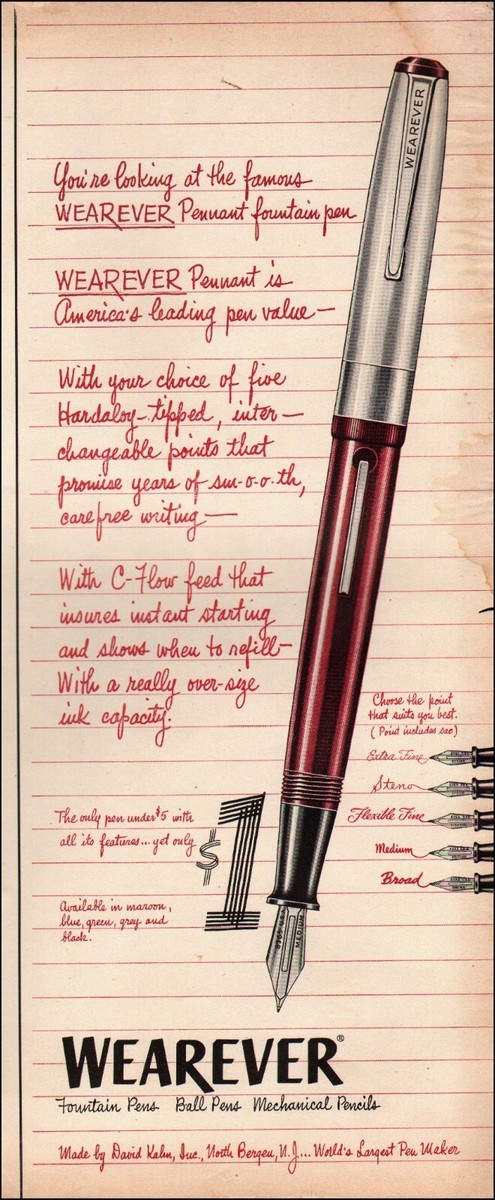 WEAREVER
You're looking at the famous
WEAREVER Pennant fountain pen
WEAREVER Pennant is
America's leading pen value—
With your choice of five
Hardaloy-tipped, inter—
changeable points that
promise years of sm-o-o-th,
carefree writing—
With C-Flow feed that
insures instant starting
and shows when to refill—
With a really over-size
ink capacity.
Choose the point
that suits you best.
(Point includes sac)
Extra Fine
Steno
Flexible Fine
Medium
Broad
The only pen under $5 with
all its features... yet only
$1
Available in maroon,
blue, green, grey and
black.
MEDIUM
WEAREVER®
Fountain Pens Ball Pens Mechanical Pencils
Made by David Kahn, Inc., North Bergen, N.J... World's Largest Pen Maker